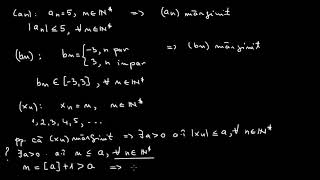 (an): an = 5, n∈ℕ* => (an) mărginit
|an| ≤ 5, ∀ n∈ℕ*
(bn): bn = { -3, n par
3, n impar => (bn) mărginit
bn ∈ [-3,3], ∀ n∈ℕ*
(xn): xn = n, n∈ℕ*
1, 2, 3, 4, 5, ...
pp că (xn) mărginit => ∃a>0 aî |xn| ≤ a, ∀ n∈ℕ*
? ∃a>0 aî n ≤ a, ∀ n∈ℕ*
n = [a]+1 > a =>